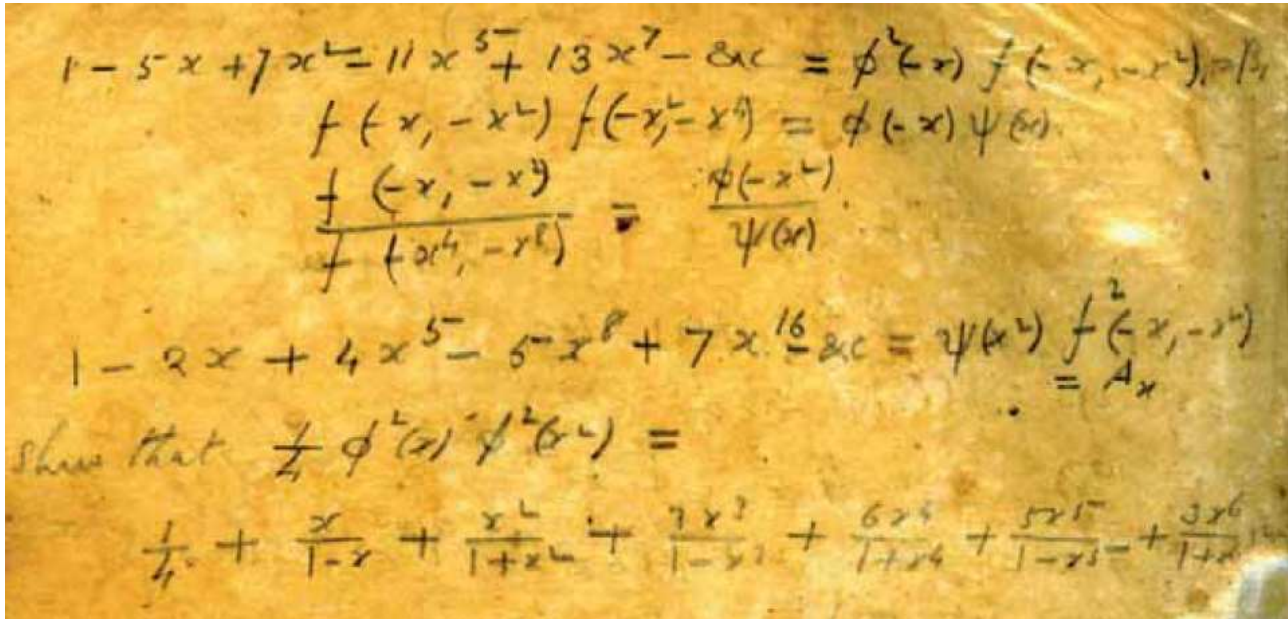 1 - 5x + 7x² - 11x⁵ + 13x⁷ - &c = φ²(-x) f(-x, -x²)
f(-x, -x²) f(-x², -x⁴) = φ(-x) ψ(x).
f(-x, -x²) / f(-x⁴, -x⁸) = φ(-x²) / ψ(x).
1 - 2x + 4x⁵ - 5x⁸ + 7x¹⁶ - &c = ψ(x²) f²(-x, -x²)
= Aₓ
show that ¼ φ²(x) φ²(x²) =
1/4 + x/(1-x) + x²/(1+x²) + 3x³/(1-x³) + 6x⁴/(1+x⁴) + 5x⁵/(1-x⁵) + 3x⁶/(1+x